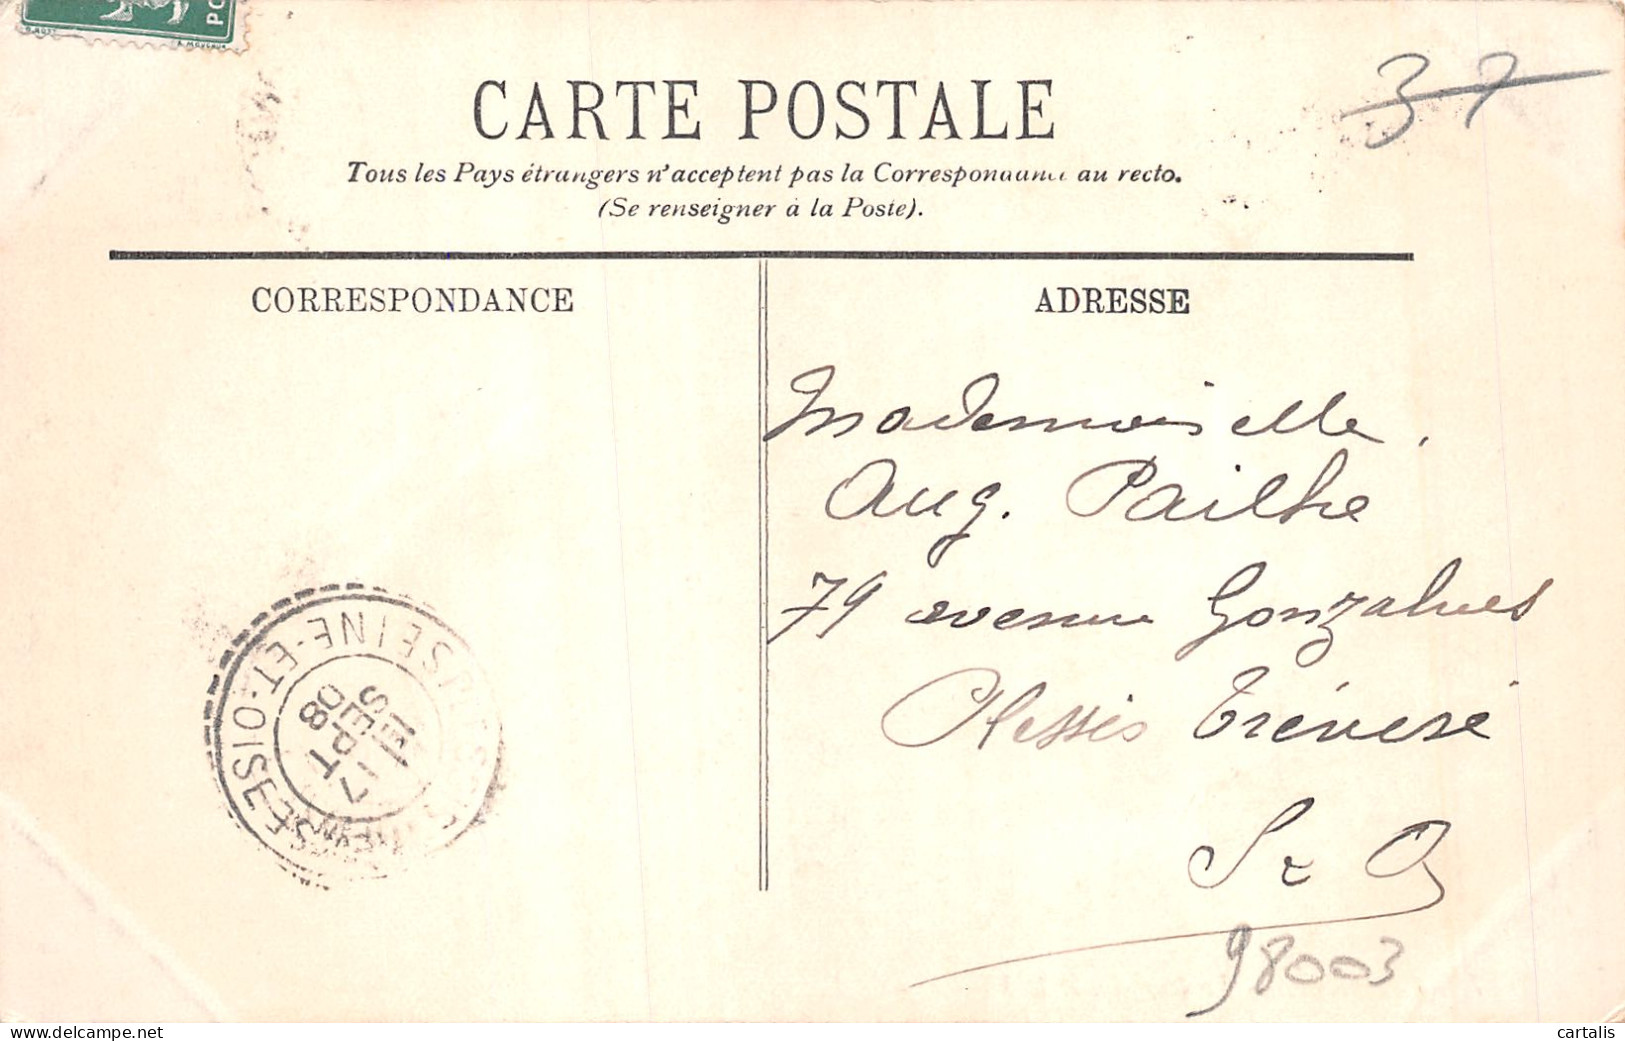 CARTE POSTALE
37
Tous les Pays étrangers n'acceptent pas la Correspondance au recto.
(Se renseigner à la Poste).
CORRESPONDANCE
ADRESSE
Mademoiselle
Aug. Pailhe
79 avenue Gonzalves
Plessis Trévise
S & O
SEINE-ET-OISE
17
SEPT
08
98003
delcampe.net
cartalis